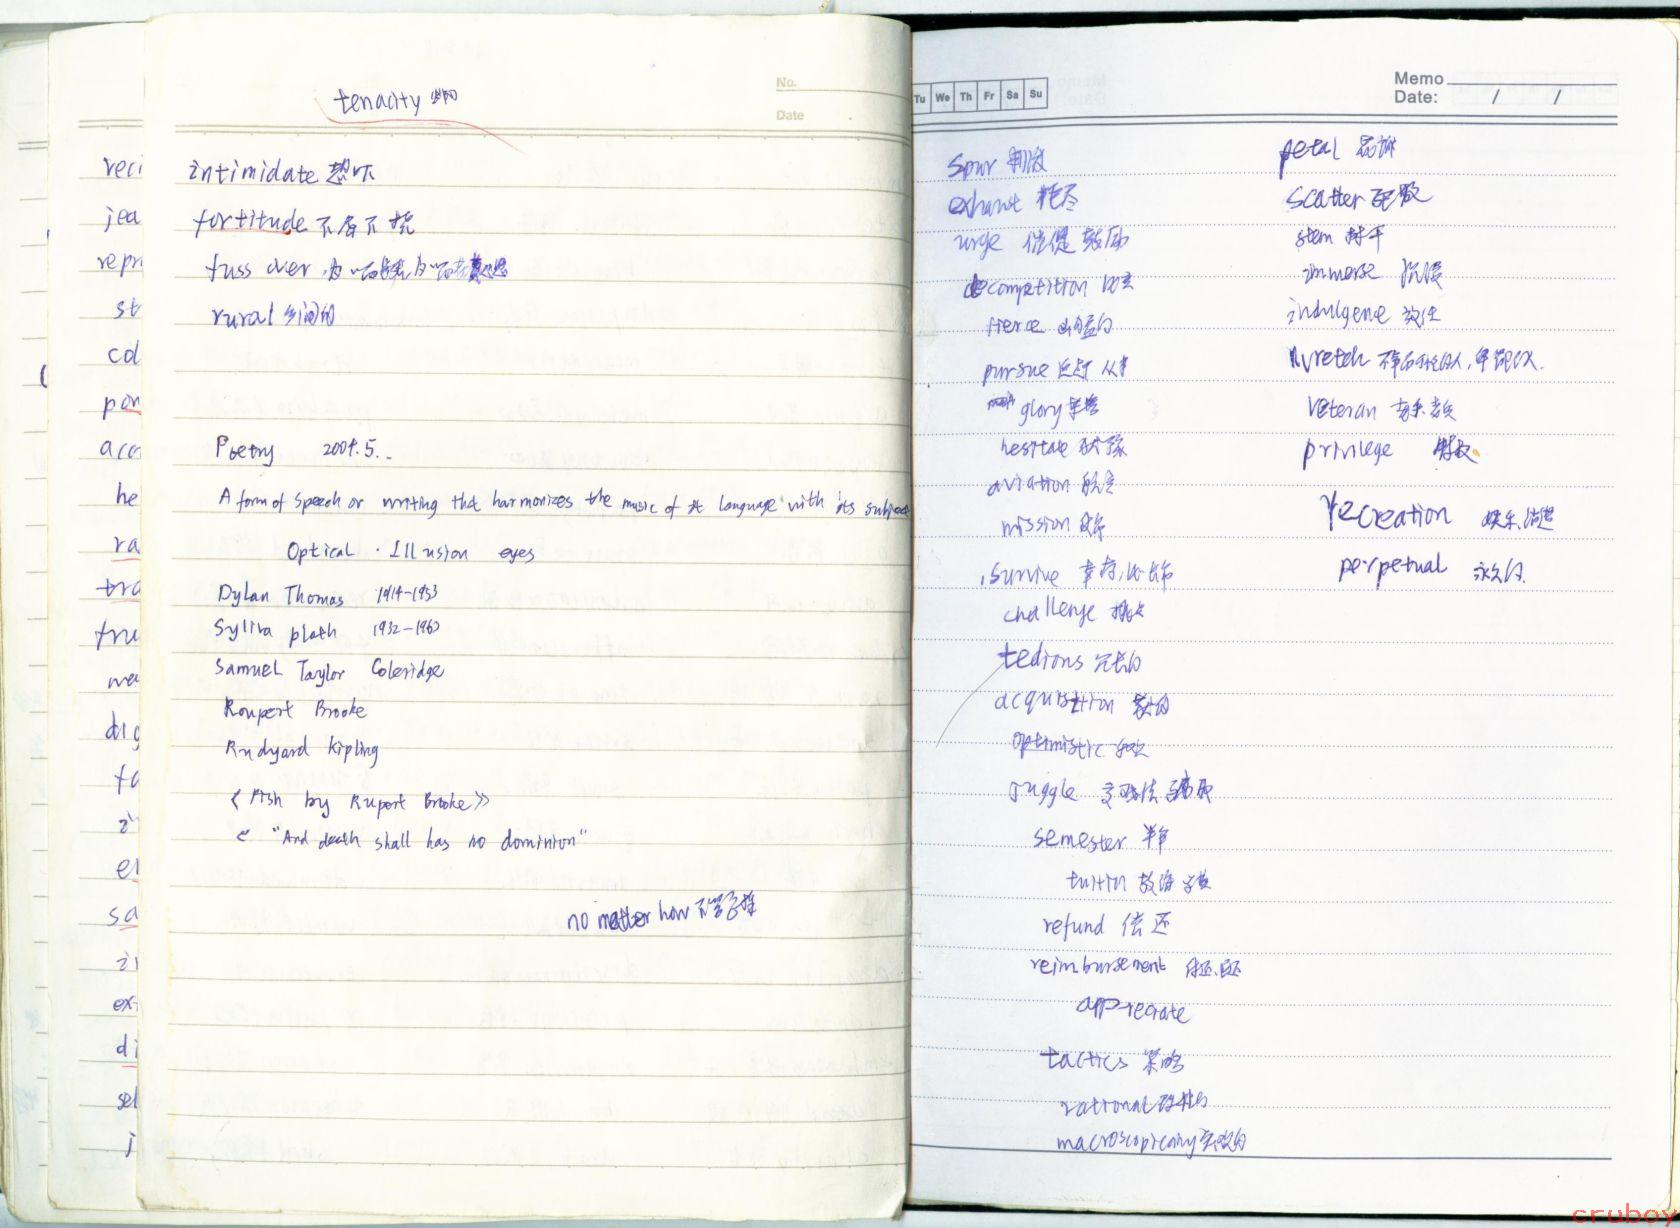 tenacity
No.
Date
intimidate 恐吓
fortitude 不屈不挠
fuss over
rural 乡间的
Poetry 2009.5.
A form of speech or writing that harmonizes the music of its language with its subject
Optical · Illusion eyes
Dylan Thomas 1914-1953
Syliva plath 1932-1963
Samuel Taylor Coleridge
Roupert Brooke
Rudyard kipling
< Fish by Rupert Brooke>>
< "And death shall has no dominion"
no matter how 不管怎样
reci
jea
repr
st
col
pon
acco
he
ra
tra
tru
wea
dig
fa
el
sa
ex
di
sel
j
Tu We Th Fr Sa Su
Memo
Date: / /
spur 刺激
exhaust 耗尽
urge 催促 鼓励
competition 比赛
fierce 凶猛的
pursue 追赶 从事
glory 荣誉
hesitae 犹豫
aviation 航空
mission 任务
survive 幸存,比..长命
challenge 挑战
tedious 冗长的
acqustion 获得的
optimistic 乐观
juggle 变戏法
semester 半年
tuition 教诲 学费
refund 偿还
reimbursement 偿还.退还
appreciate
tactics 策略
rational 理性的
macroscopicainy 宏观的
petal 花瓣
scatter 驱散
stem 树干
immerse 沉浸
indulgene 放任
wretch 不幸的可怜的人,卑鄙的人.
veteran 老兵
privilege 特权
recreation 娱乐,消遣
perpetual 永久的
crubox